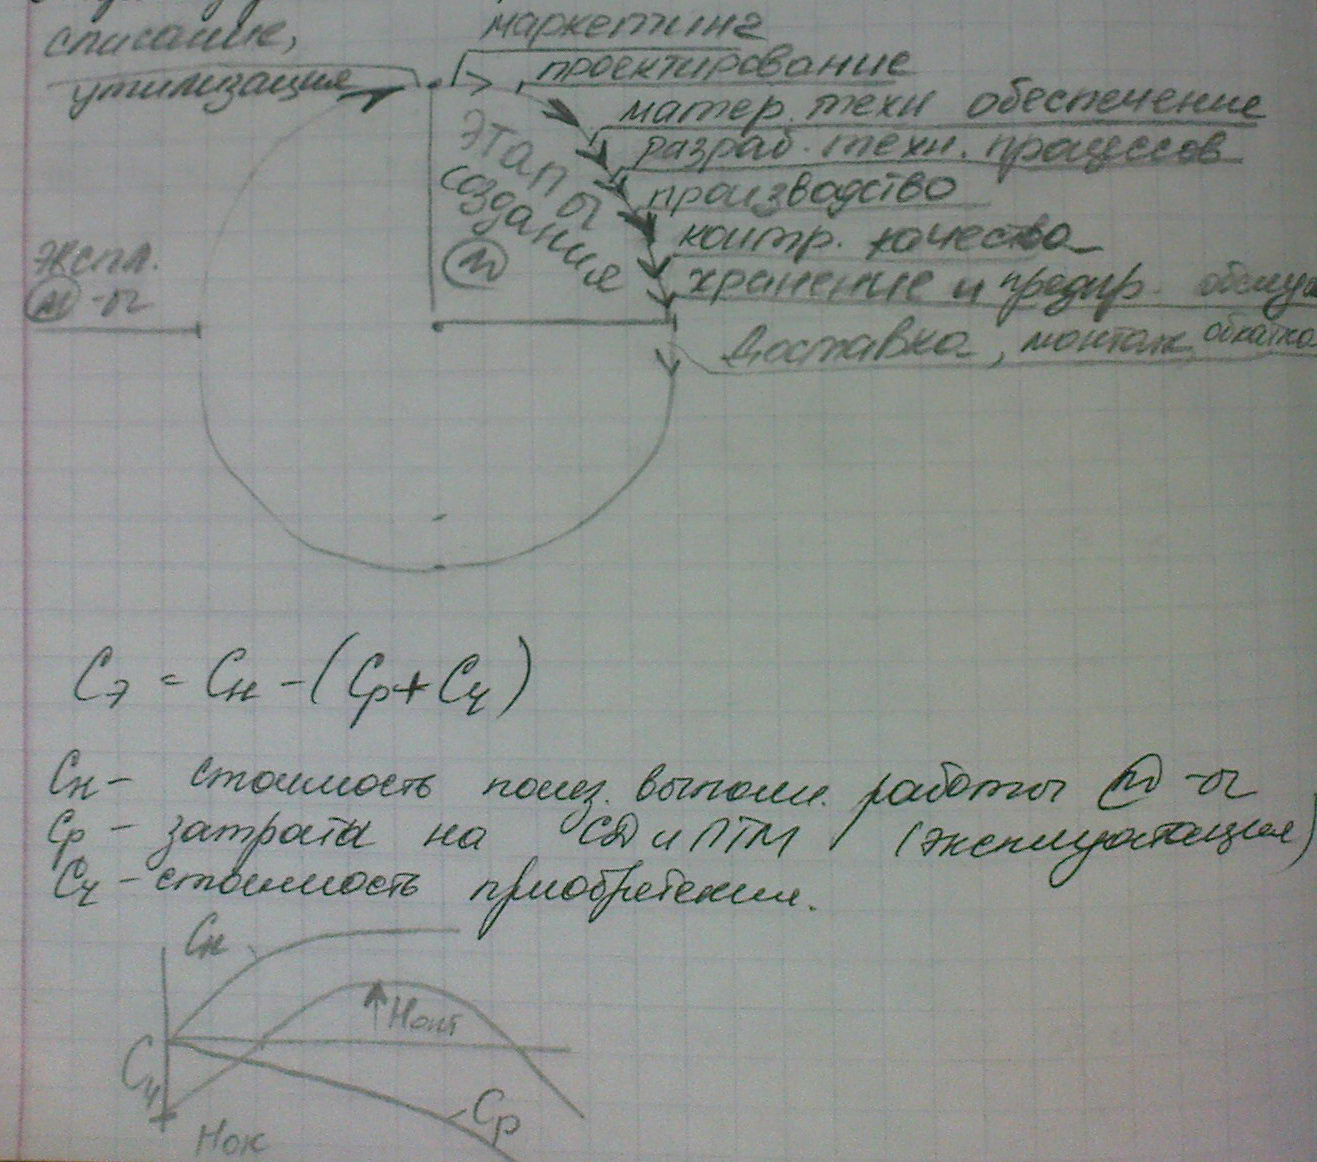 списание,
утилизация
маркетинг
проектирование
матер. техн обеспечение
разраб. техн. процессов
производство
контр. качества
хранение и предпр. обслуж
Доставка, монтаж, обкатка
этапы
создания
м
экспл.
м -ы
Сэ = Сн - (Ср + Сч)
Сн - стоимость полез. выполн. работы м -ы
Ср - затраты на СД и ПТМ (эксплуатация)
Сч - стоимость приобретения.
Сн
Нопт
Сч
Ср
Нок